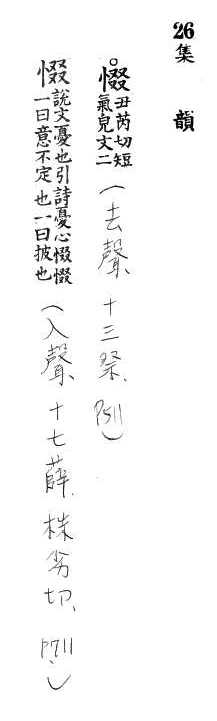 26集 韻
。惙丑芮切短氣皃文二（去聲、十三祭、P511）
惙說文憂也引詩憂心惙惙一曰意不定也一曰披也（入聲、十七薛、株劣切、P711）